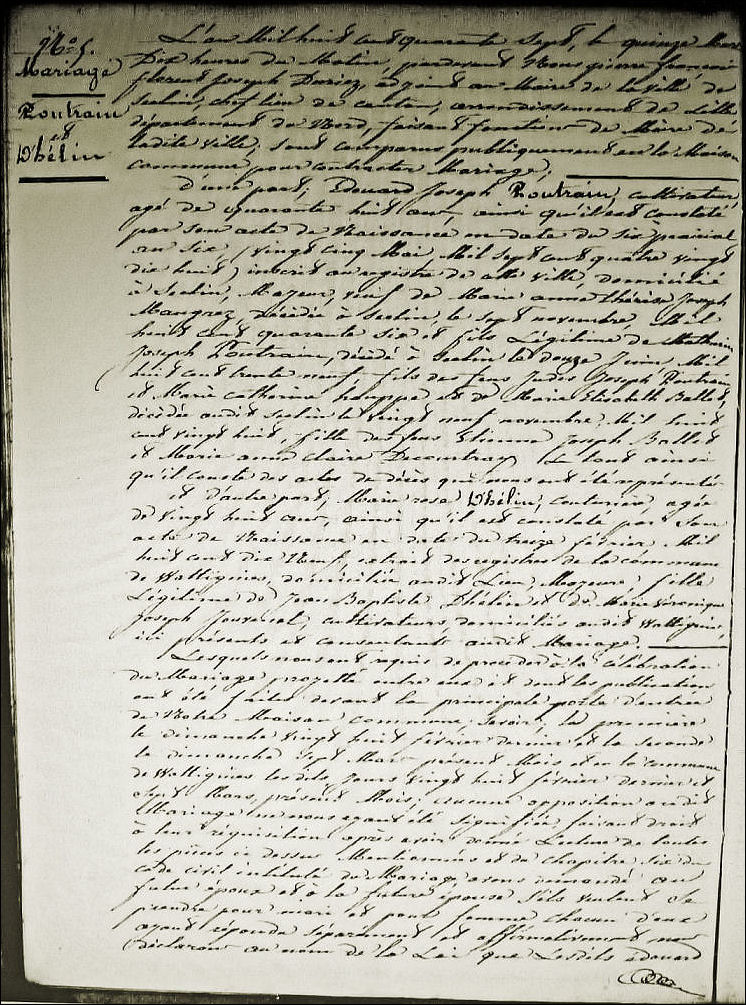 N° 5.
Mariage
Poutrain
et
D'hélin
L'an Mil huit cent quarante Sept, le quinze Mars
Dix heures du Matin, pardevant Nous pierre françois
florent Joseph Duriez, adjoint au Maire de la ville de
Seclin, chef lieu de canton, arrondissement de Lille
département du Nord, faisant fonction de Maire de
ladite ville, sont comparus publiquement en la Maison
commune pour contracter Mariage,
D'une part; Edouard Joseph Poutrain, cultivateur,
agé de quarante huit ans, ainsi qu'il est constaté
par son acte de Naissance en date du six prairial
an six, (vingt cinq Mai, Mil sept cent quatre vingt
dix huit) inscrit au registre de cette ville, domicilié
à Seclin, Majeur, veuf de Marie anne thérèse Joseph
Maugrez décédée à Seclin, le sept novembre, Mil
huit cent quarante six et fils Légitime de Mathurin
Joseph Poutrain, décédé à Seclin le douze Juin Mil
huit cent trente neuf, fils des feus Judes Joseph Poutrain
et Marie catherine et de Marie Elisabeth Ballet,
décédée audit Seclin le vingt neuf novembre Mil huit
cent vingt huit, fille des feus Etienne Joseph Ballet
et Marie anne Claire Decourtray. Le tout ainsi
qu'il conste des actes de décès qui nous ont été représentés
et d'autre part, Marie rose D'hélin, couturière, agée
de vingt huit ans, ainsi qu'il est constaté par son
acte de Naissance en date du treize février Mil
huit cent dix Neuf, extrait des registres de la commune
de Wattignies, domiciliée audit Lieu, Majeure, fille
Légitime de Jean Baptiste D'hélin et de Marie Véronique
Joseph Jouvenel, cultivateurs domiciliés audit Wattignies,
ici présents et consentants audit Mariage,
Lesquels nous ont requis de procéder à la Célébration
du Mariage projetté entre eux et dont les publications
ont été faites devant la principale porte d'entrée
de Notre Maison commune, Savoir, la première
le dimanche vingt huit février dernier et la seconde
le dimanche sept Mars présent Mois et en la commune
de Wattignies lesdits Jours vingt huit février dernier et
Sept Mars, présent Mois; aucune opposition audit
Mariage ne nous ayant été signifiée, faisant droit
à leur réquisition, après avoir donné Lecture de toutes
les pièces ci dessus Mentionnées et du chapitre Six du
code civil intitulé du Mariage avons demandé au
futur époux et à la future épouse S'ils veulent Se
prendre pour mari et pour femme chacun d'eux
ayant répondu Séparément et affirmativement nous
déclarons au nom de la Loi que Lesdits édouard